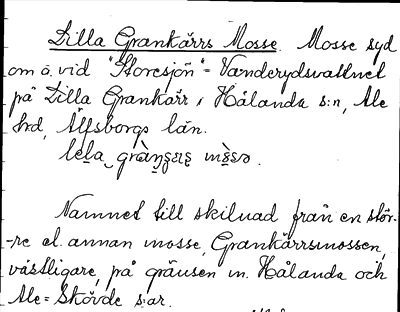 Lilla Grankärrs Mosse. Mosse syd
om ö. vid "Storesjön" = Vanderydsvattnet
på Lilla Grankärr i Hålanda s:n, Ale
hrd, Älfsborgs län.
lela gràŋʒærs mòsə.
Namnet till skilnad från en stör-
-re el. annan mosse, Grankärrsmossen,
västligare, på gränsen m. Hålanda och
Ale=Skövde s:ar.